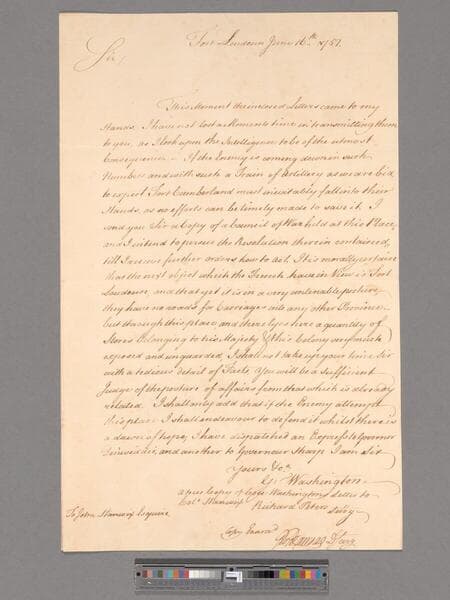 Fort Loudoun June 16th 1757.
Sir,
This Moment the inclosed Letters came to my
Hands, I have not lost a Moments time in transmitting them
to you, as I look upon the Intelligence to be of the utmost
Consequence. If the Enemy is coming down in such
Numbers and with such a Train of Artillery as we are bid
to expect Fort Cumberland must inevitably fall into their
Hands, as no efforts can be timely made to save it. I
send you Sir a Copy of a Council of War held at this Place,
and I intend to pursue the Resolution therein contained,
till I receive further orders how to act. It is morally certain
that the next object which the French have in View is Fort
Loudoun, and that yet it is in a very untenable posture,
they have no roads for Carriages into any other Province
but through this place and there lyes here a quantity of
Stores belonging to his Majesty & this Colony very much
exposed and unguarded. I shall not take up your time Sir
with a tedious detail of Facts. You will be a sufficient
Judge of the posture of affairs from that which is already
related. I shall only add that if the Enemy attempt
this place I shall endeavour to defend it whilst there is
a dawn of hope, I have dispatched an Express to Governor
Dinwiddie, and another to Governour Sharp I am Sir
Yours &c.
G. Washington
a true Copy of Coll Washingtons Letter to
Coll. Stanwix Richard Peters Secry.
To John Stanwix Esquire
Copy Examd.